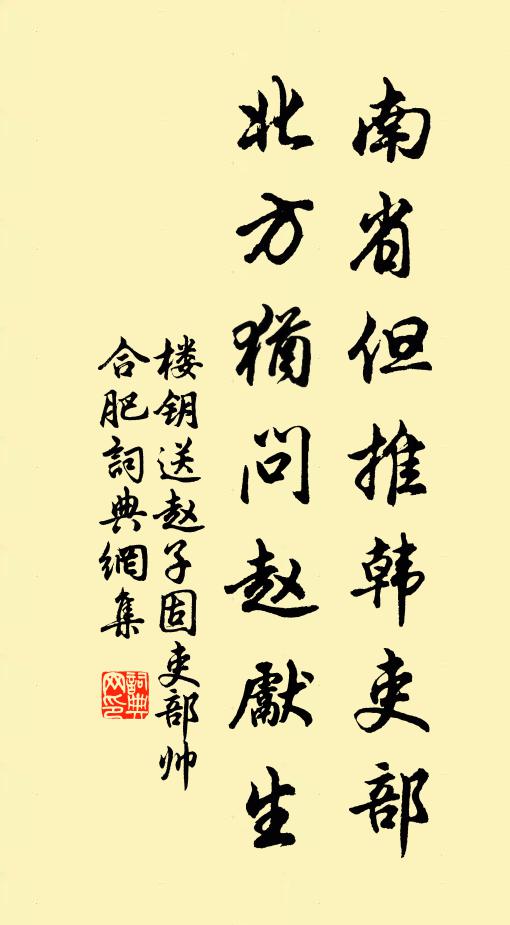 南省但推韩吏部
北方犹问赵獻生
楼钥送赵子固吏部帅
合肥詞典網集
詞典網印